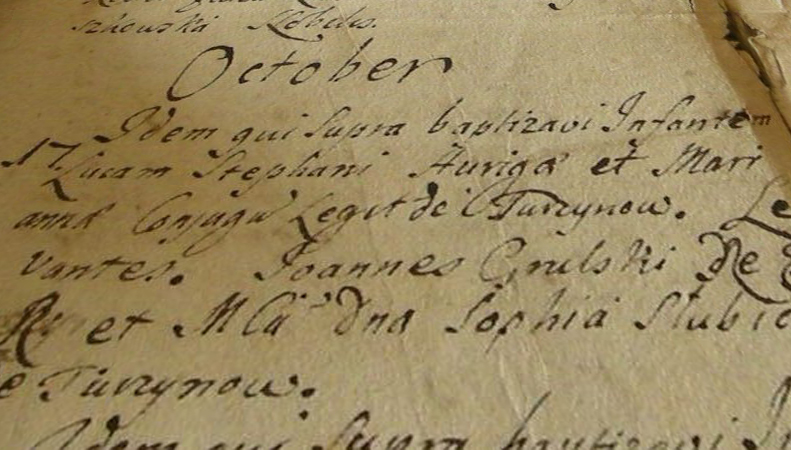 szkowski Nobiles.
October
Idem qui Supra baptizavi Infantem
17. Lucam Stephani Aurigæ et Mari
annæ Conjugu Legit de Turzynow. Le
vantes. Joannes Grulski De
et MCa Dna Sophia Stubic
e Turzynow.
Idem qui Supra baptizavi In